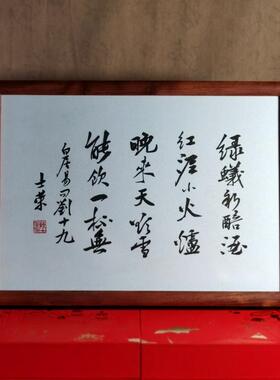 绿蟻新醅酒
红泥小火爐
晚来天欲雪
能饮一杯無
白居易问劉十九
士荣